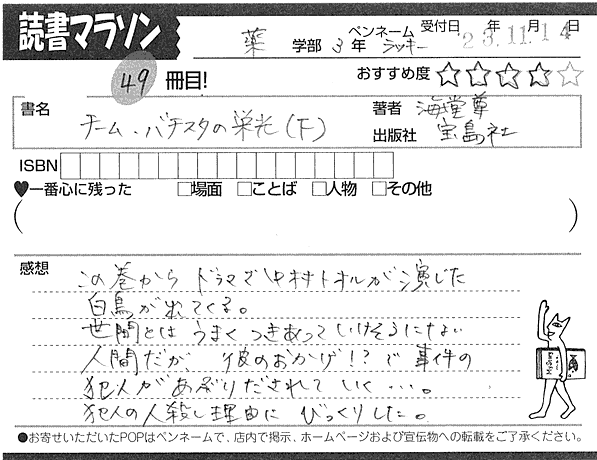 読書マラソン
薬 学部 3年 ペンネーム ラッキー 受付日 23年11月14日
49 冊目! おすすめ度 ★★★★☆
書名 チーム・バチスタの栄光(下) 著者 海堂尊
出版社 宝島社
ISBN
♥一番心に残った □場面 □ことば □人物 □その他
( )
感想
この巻から ドラマで中村トオルが演じた
白鳥が出てくる。
世間とは うまく つきあって いけそうにない
人間だが、彼のおかげ!?で 事件の
犯人が あぶりだされて いく…。
犯人の人殺し理由に びっくりした。
●お寄せいただいたPOPはペンネームで、店内で掲示、ホームページおよび宣伝物への転載をご了承ください。